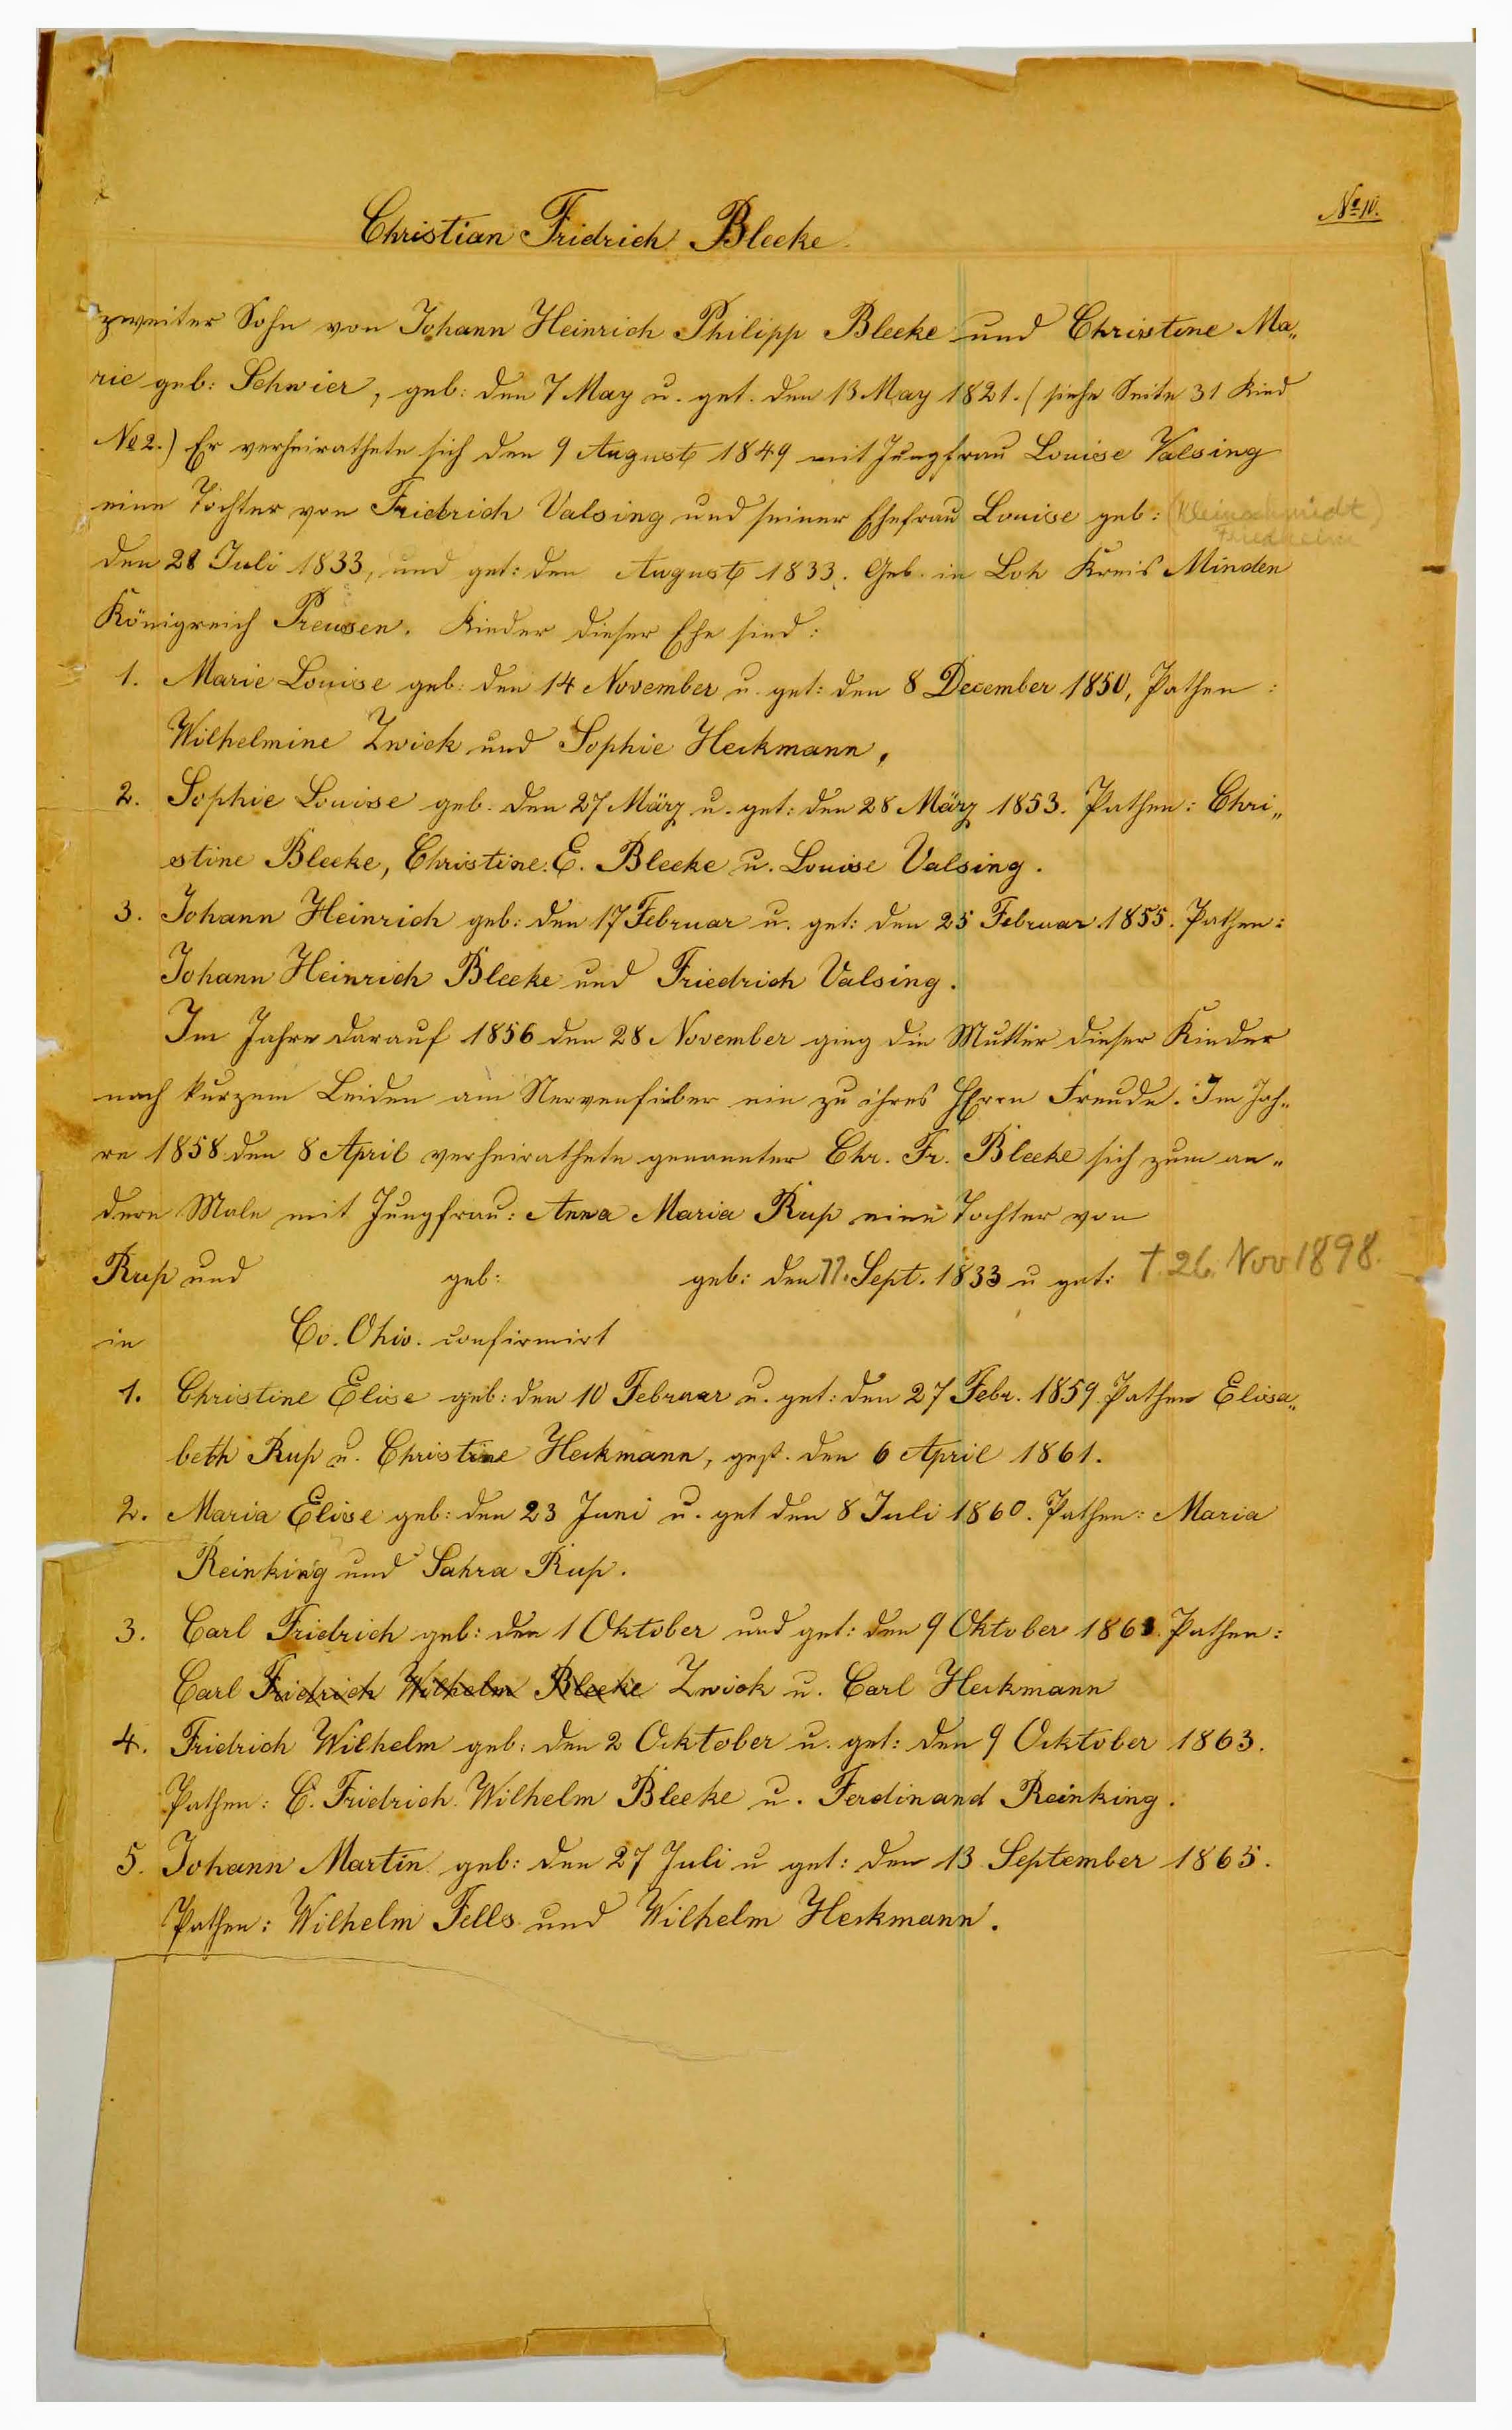 No 10.
Christian Fridrich Bleeke
zweiter Sohn von Johann Heinrich Philipp Bleeke und Christine Ma„
rie geb: Schwier, geb: den 7 May u. get. den 13 May 1821. (siehe Seite 31 Kind
No 2.) Er verheirathete sich den 9 August 1849 mit Jungfrau Louise Valsing
eine Tochter von Friedrich Valsing und seiner Ehefrau Louise geb: (Kleinschmidt)
Friedheim
den 28 Juli 1833, und get: den August 1833. Geb. in Loh Kreis Minden
Königreich Preusen. Kinder dieser Ehe sind:
1. Marie Louise geb: den 14 November u. get: den 8 December 1850, Pathen:
Wilhelmine Zwick und Sophie Heckmann,
2. Sophie Louise geb. den 27 März u. get: den 28 März 1853. Pathen: Chri„
stine Bleeke, Christine E. Bleeke u. Louise Valsing.
3. Johann Heinrich geb: den 17 Februar u. get: den 25 Februar 1855. Pathen:
Johann Heinrich Bleeke und Friedrich Valsing.
Im Jahre darauf 1856 den 28 November ging die Mutter dieser Kinder
nach kurzem Leiden am Nervenfieber ein zu ihres HErrn Freude. Im Jah„
re 1858 den 8 April verheirathete genannter Chr. Fr. Bleeke sich zum an„
dern Male mit Jungfrau: Anna Maria Rup eine Tochter von
Rup und geb: geb: den 17. Sept. 1833 u get: † 26. Nov 1898.
in Co. Ohio. confirmirt
1. Christine Elise geb: den 10 Februar u. get: den 27 Febr. 1859. Pathen Elisa„
beth Rup u. Christine Heckmann, gest. den 6 April 1861.
2. Maria Elise geb: den 23 Juni u. get den 8 Juli 1860. Pathen: Maria
Reinking und Sahra Rup.
3. Carl Fridrich geb: den 1 Oktober und get: den 9 Oktober 1861. Pathen:
Carl Fridrich Wilhelm Bleeke Zwick u. Carl Heckmann
4. Fridrich Wilhelm geb: den 2 Ocktober u. get: den 9 Ocktober 1863.
Pathen: C. Fridrich Wilhelm Bleeke u. Ferdinand Reinking.
5. Johann Martin geb: den 27 Juli u get: den 13 September 1865.
Pathen: Wilhelm Fells und Wilhelm Heckmann.